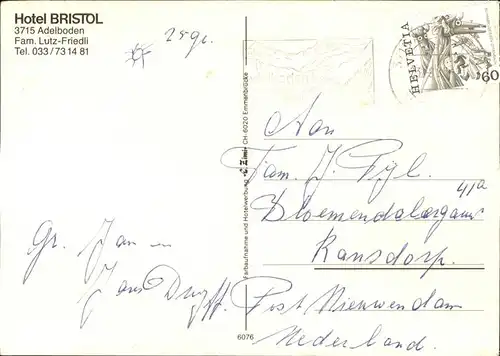 Hotel BRISTOL
3715 Adelboden
Fam. Lutz-Friedli
Tel. 033/73 14 81
25 gr.
HELVETIA
60
Farbaufnahme und Hotelwerbung CH-6020 Emmenbrücke
6076
Aan
Fam. J.
41a
Bloemendalergouw
Ransdorp.
Post Nieuwendam
Nederland.
Gr. Jan en